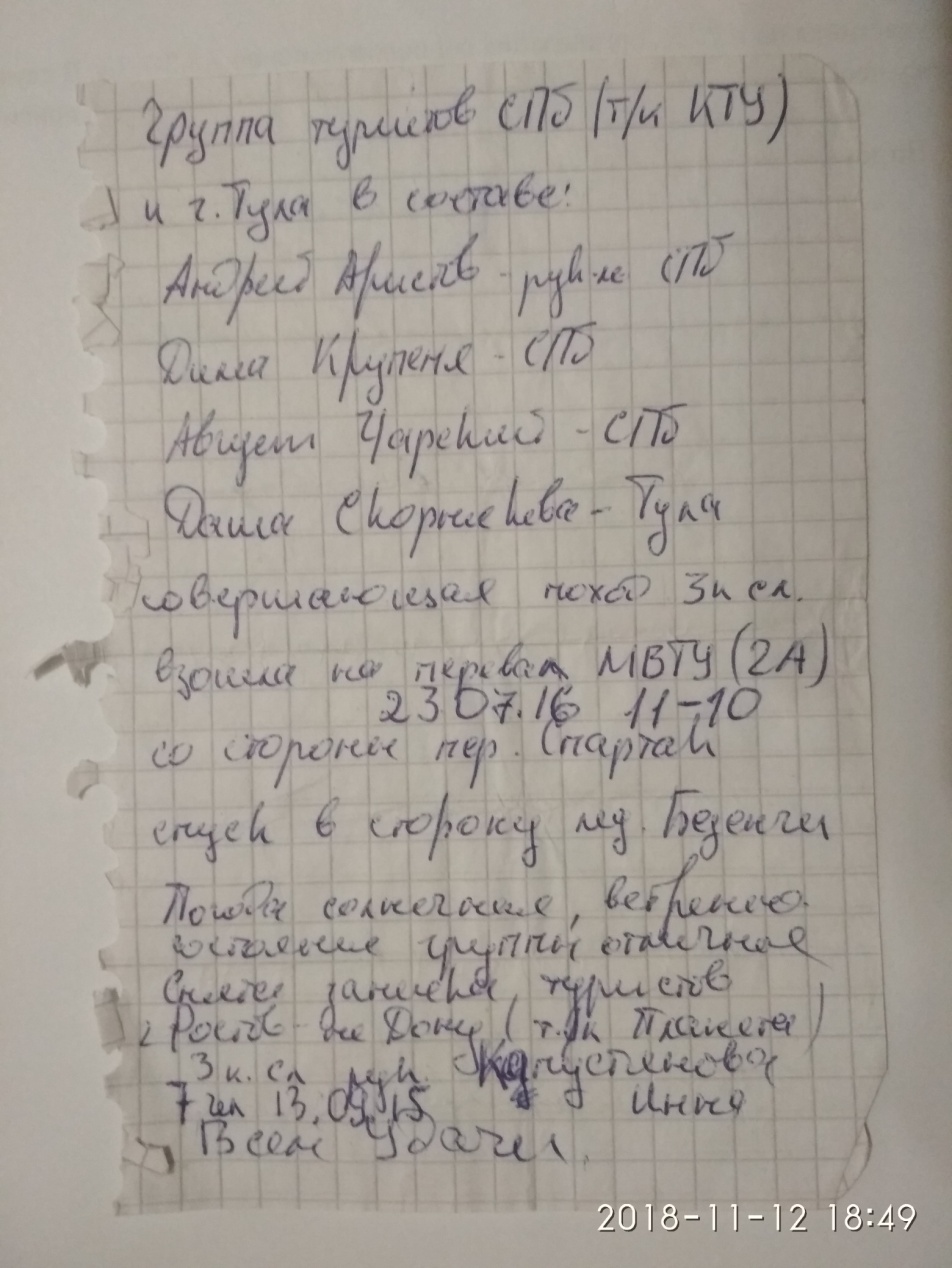 Группа туристов СПб (т/к КТУ)
и г. Тула в составе:
Андрей Аристов - рук-ль СПб
Дима Крупеня - СПб
Август Чарский - СПб
Даша Скорнякова - Тула
совершающая поход 3к сл.
взошла на перевал МВТУ (2А)
23 07.16 11-10
со стороны пер. Спартак
спуск в сторону лед. Безенги
Погода солнечная, ветрено.
состояние группы отличное
Снята записка, туристов
г Ростов-на Дону (т.к Планета)
3 к. сл рук. Капустянова
7 чел 13.09.15 Инна
Всем Удачи.
2018-11-12 18:49